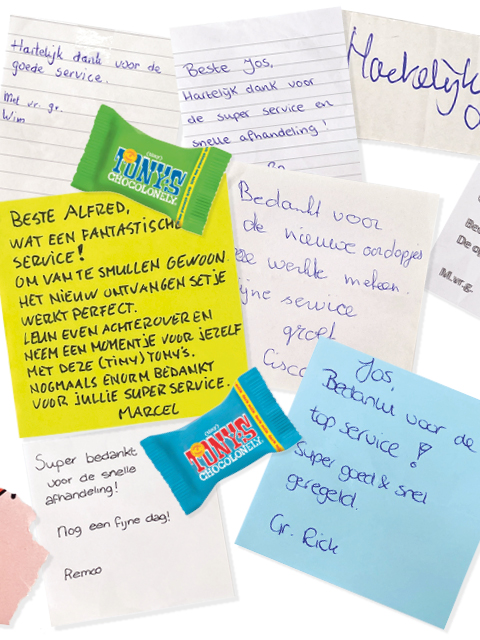 Hartelijk dank voor de
goede service.
Met vr. gr.
Wim
Beste Jos,
Hartelijk dank voor
de super service en
snelle afhandeling!
TONY'S
CHOCOLONELY
BESTE ALFRED,
WAT EEN FANTASTISCHE
SERVICE!
OM VAN TE SMULLEN GEWOON.
HET NIEUW ONTVANGEN SETJE
WERKT PERFECT.
LEUN EVEN ACHTEROVER EN
NEEM EEN MOMENTJE VOOR JEZELF
MET DEZE (TINY) TONY'S.
NOGMAALS ENORM BEDANKT
VOOR JULLIE SUPER SERVICE.
MARCEL
Bedankt voor
de nieuwe oordopjes
werkte meteen.
service
groet
Cisco
TONY'S
CHOCOLONELY
Jos,
Bedankt voor de
top service!
Super goed & snel
geregeld.
Gr. Rick
Super bedankt
voor de snelle
afhandeling!
Nog een fijne dag!
Remco